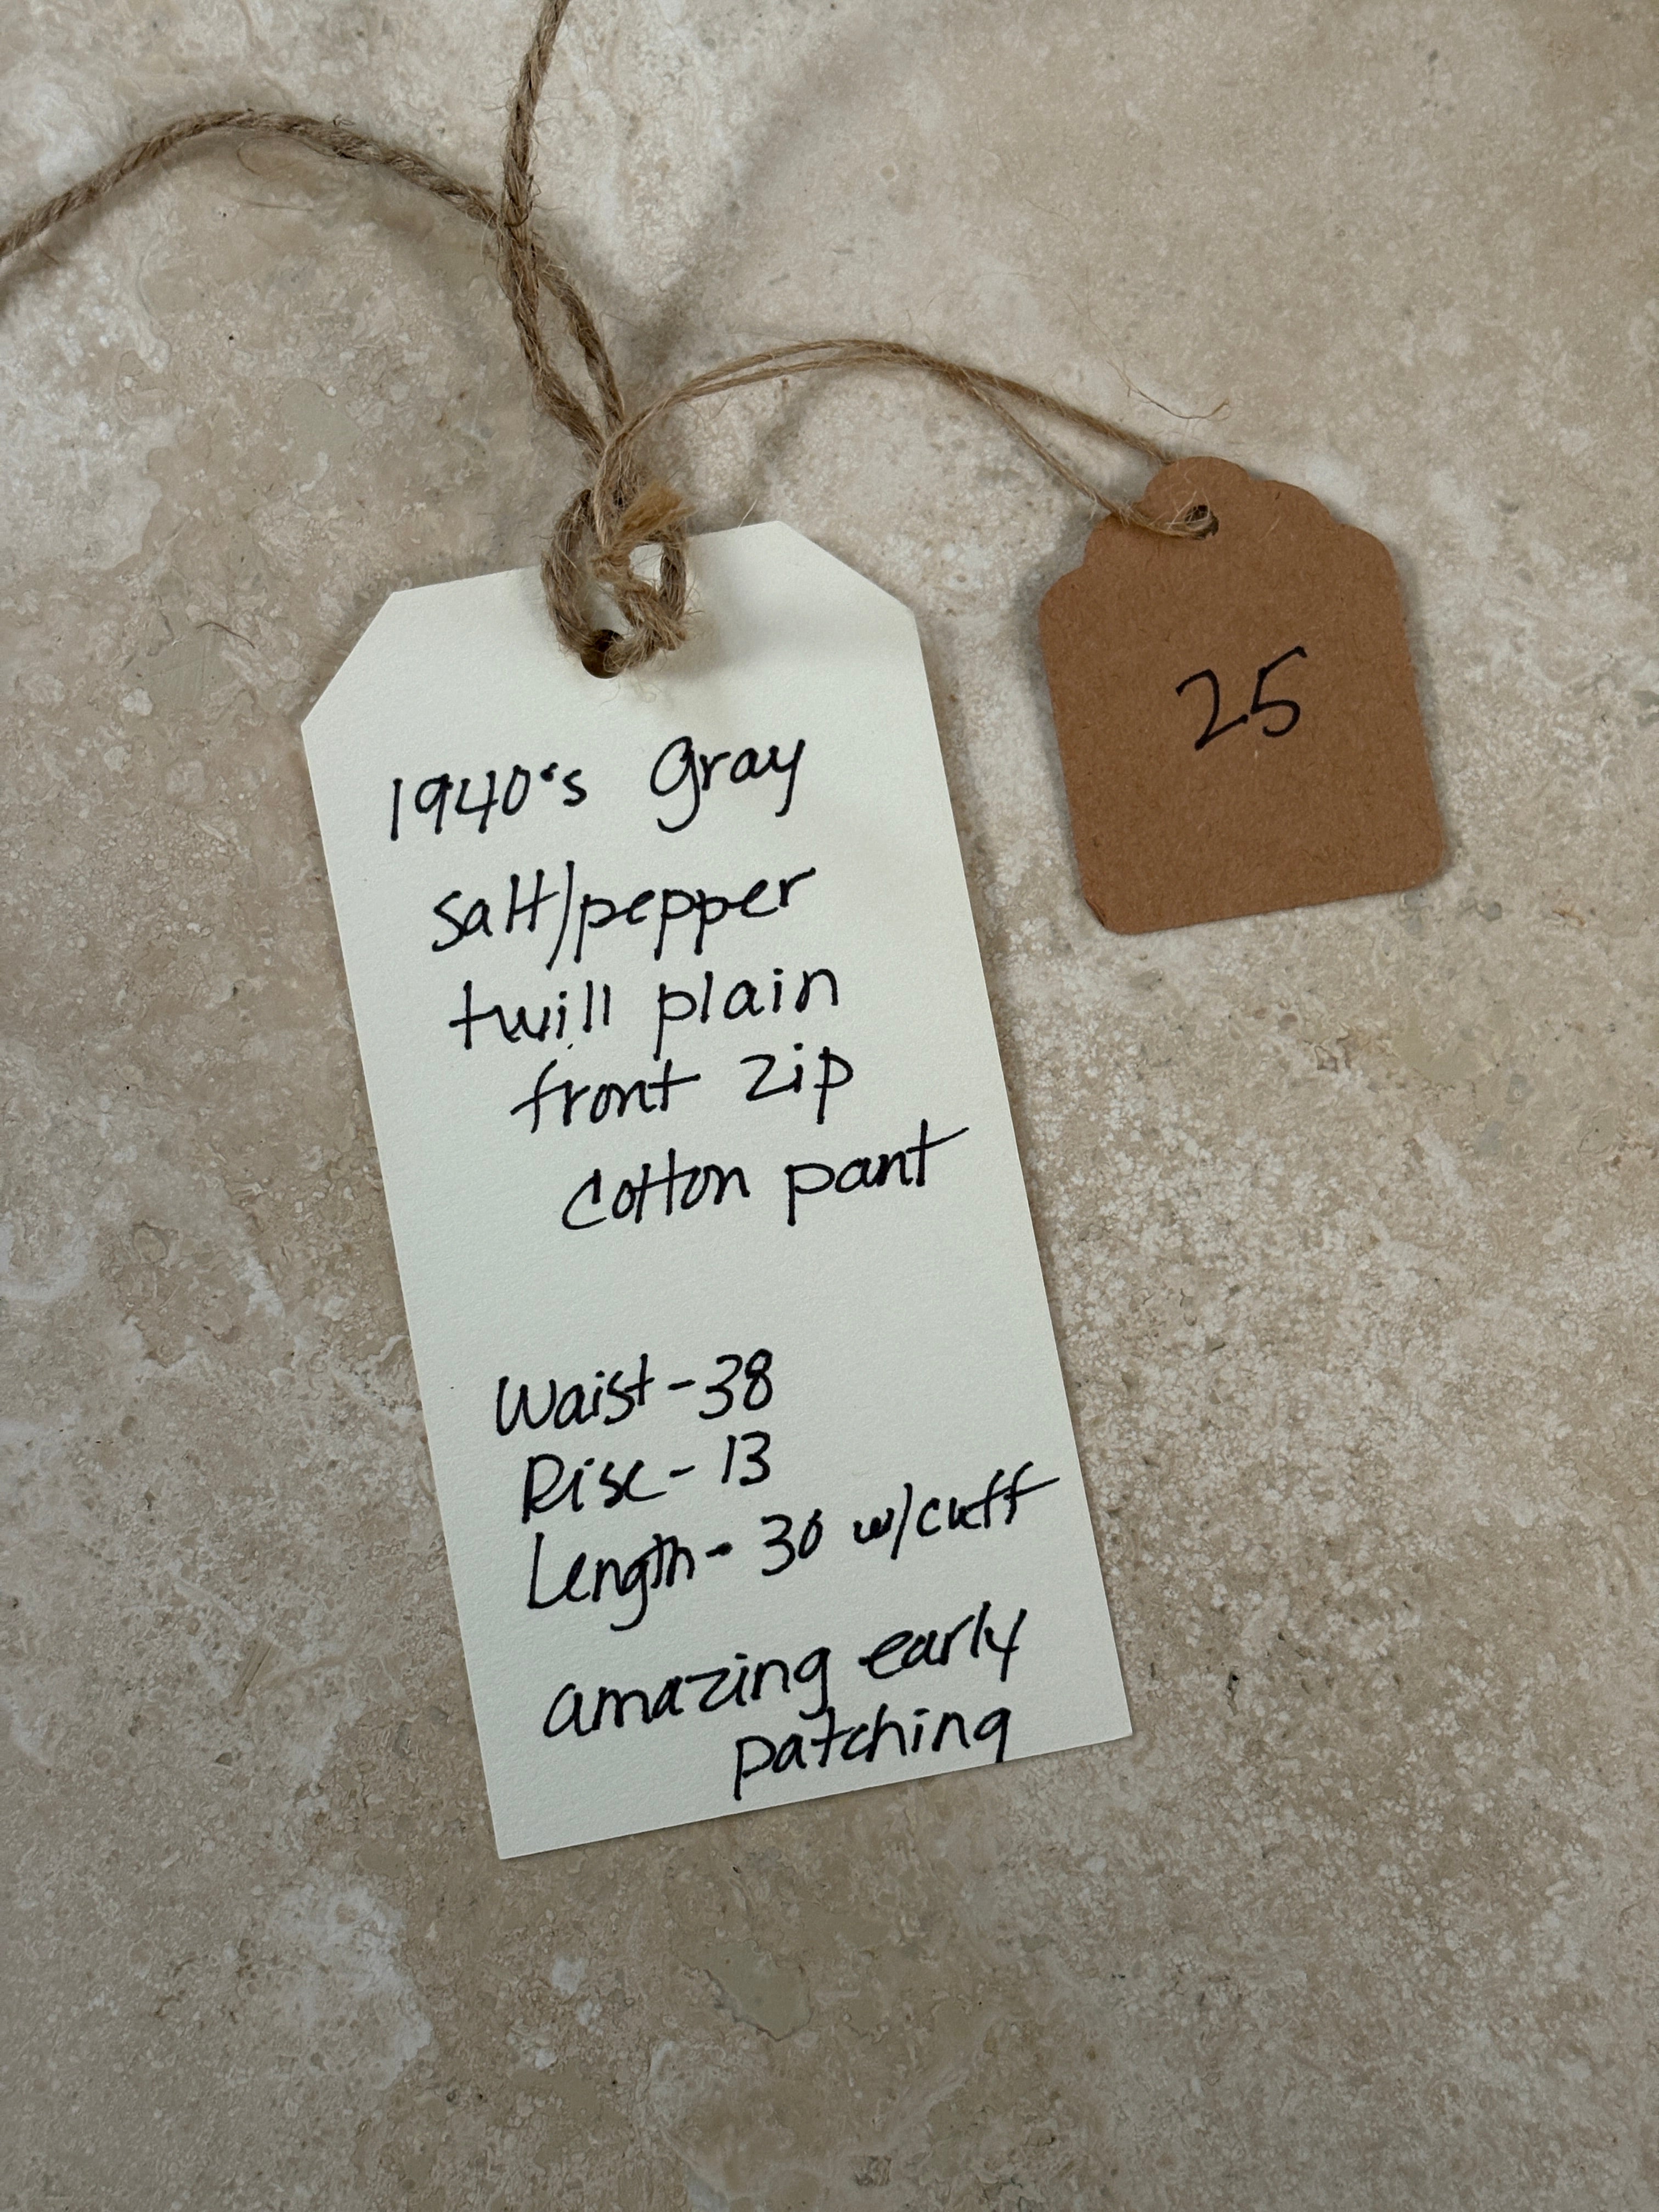 1940's Gray
salt/pepper
twill plain
front zip
cotton pant
Waist-38
Rise-13
Length-30 w/cuff
amazing early
patching
25